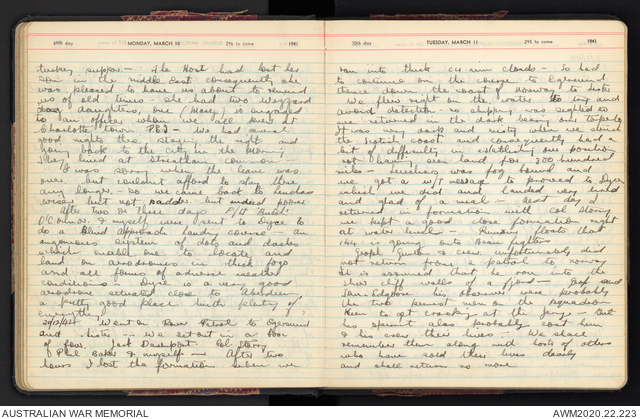 69th day MONDAY, MARCH 10 296 to come 1941
turkey supper — The Host had lost her
son in the middle East consequently she
was pleased to have us about to remind
us of old times. She had two
daughters, one is engaged
to an officer whom we all knew at
Charlotte town P.E.I — We had several
good nights there staying the night and
going back to the city in the morning
They lived at Streatham common.
I was sorry when the leave was
over but couldn't afford to stay there
any longer. So we came back to
wiser but not sadder but indeed poorer
After two or three days F/Lt
O'Connor & myself were sent to Dyce to
do a Blind approach landing course — an
ingenious system of dots and dashes
which enable one to locate and
land on aerodromes in thick fogs
and all forms of adverse weather
conditions — Dyce is a very good
aerodrome situated close to Aberdeen
a pretty good place with plenty of
everything
Went on Rover Patrol to Egersund
and Lister — We set out in a box
of four. Jack Davenport Col Storry
Phil Baker & myself — After two
hours I lost the formation when we
70th day TUESDAY, MARCH 11 295 to come 1941
ran into thick cu nim clouds — So had
to continue on the course to Egersund
thence down the coast of Norway to Lister
We flew right on the water to try and
avoid detection no shipping was sighted so
we returned in the dark bearing our torpedo
It was very dark and misty when we struck
the Scotch coast and consequently had a
bit of difficulty in establishing our position
not having seen land for 300 hundred
miles — Leuchars was fog bound and
we got a W/T message to proceed to Dyce
which we did and landed very tired
and glad of a meal — Next day I
returned in formation with Col Storry
we kept a good close formation right
at water level — Rumour floats that
144 is going onto Beau fighters
Joseph & crew unfortunately did
not return from a patrol to Norway
It is assumed that he ran into the
sheer cliff walls of a fjord — Joe and
his observer were probably
the two keenest men on the squadron
Keen to get cracking at the Jerrys — But
his spirit also probably cost him
& his crew their lives — We shall
remember them along with hosts of others
who have sold their lives dearly
and shall return no more
AUSTRALIAN WAR MEMORIAL
AWM2020.22.223